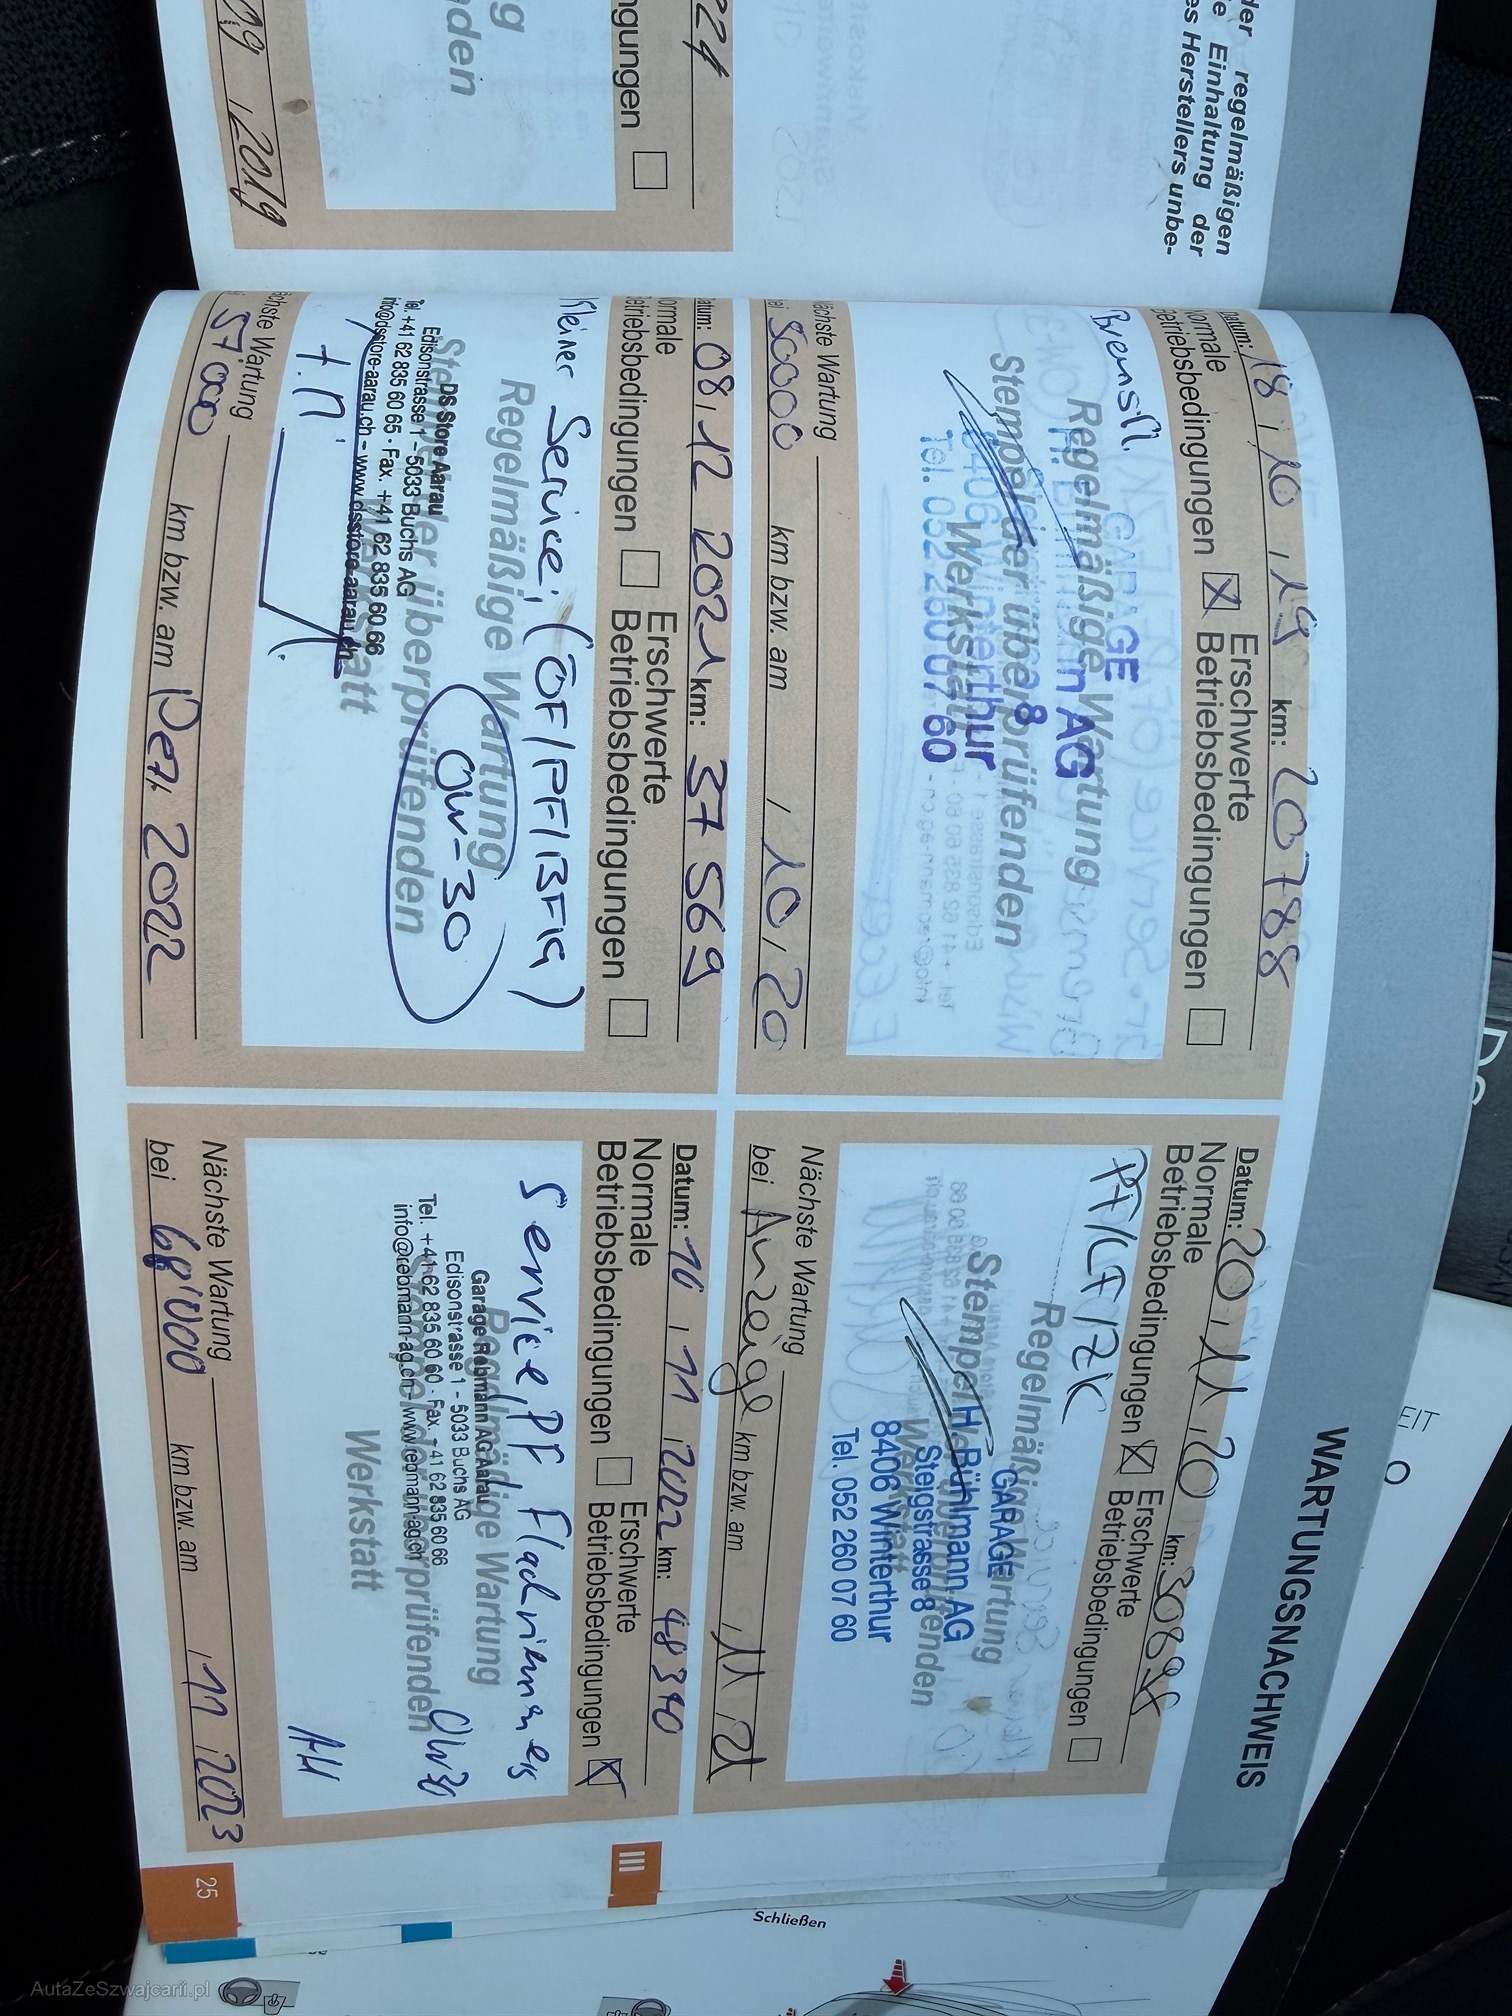 224
ngungen
g
den
09 , 2019
der regelmäßigen
e Einhaltung der
es Herstellers unbe-
WARTUNGSNACHWEIS
Datum: 18 , 10 , 19 km: 20788
Normale
Betriebsbedingungen
Erschwerte
Betriebsbedingungen
Bremsfl.
Regelmäßige Wartung
Stempel der überprüfenden
Werkstatt
GARAGE
8406 Winterthur
Tel. 052 260 07 60
Nächste Wartung
bei 50000 km bzw. am , 10 , 20
Datum: 20 , 11 , 20 km: 30898
Normale
Betriebsbedingungen
Erschwerte
Betriebsbedingungen
PF/LF/ZK
Regelmäßige Wartung
Stempel der überprüfenden
Werkstatt
GARAGE
H. Bühlmann AG
Steigstrasse 8
8406 Winterthur
Tel. 052 260 07 60
Nächste Wartung
bei Anzeige km bzw. am , 11 , 21
Datum: 08, 12 2021 km: 37 569
Normale
Betriebsbedingungen
Erschwerte
Betriebsbedingungen
Kleiner Service; (ÖF/PF/BFlG)
Regelmäßige Wartung
Stempel der überprüfenden
Werkstatt
0W-30
DS Store Aarau
Edisonstrasse 1 - 5033 Buchs AG
Tel. +41 62 835 60 65 · Fax. +41 62 835 60 66
info@dsstore-aarau.ch - www.dsstore-aarau.ch
Nächste Wartung
bei 57000 km bzw. am Dez. 2022
Datum: 10 , 11 , 2022 km: 48340
Normale
Betriebsbedingungen
Erschwerte
Betriebsbedingungen
Service, PF, Flachriemen ers
Regelmäßige Wartung
Stempel der überprüfenden
Werkstatt
0W30
Garage Rebmann AG Aarau
Edisonstrasse 1 - 5033 Buchs AG
Tel. +41 62 835 60 60 · Fax +41 62 835 60 66
info@rebmann-ag.ch - www.rebmann-ag.ch
Nächste Wartung
bei 68'000 km bzw. am , 11 , 2023
III
25
Schließen
EIT
DS
AutaZeSzwajcarii.pl